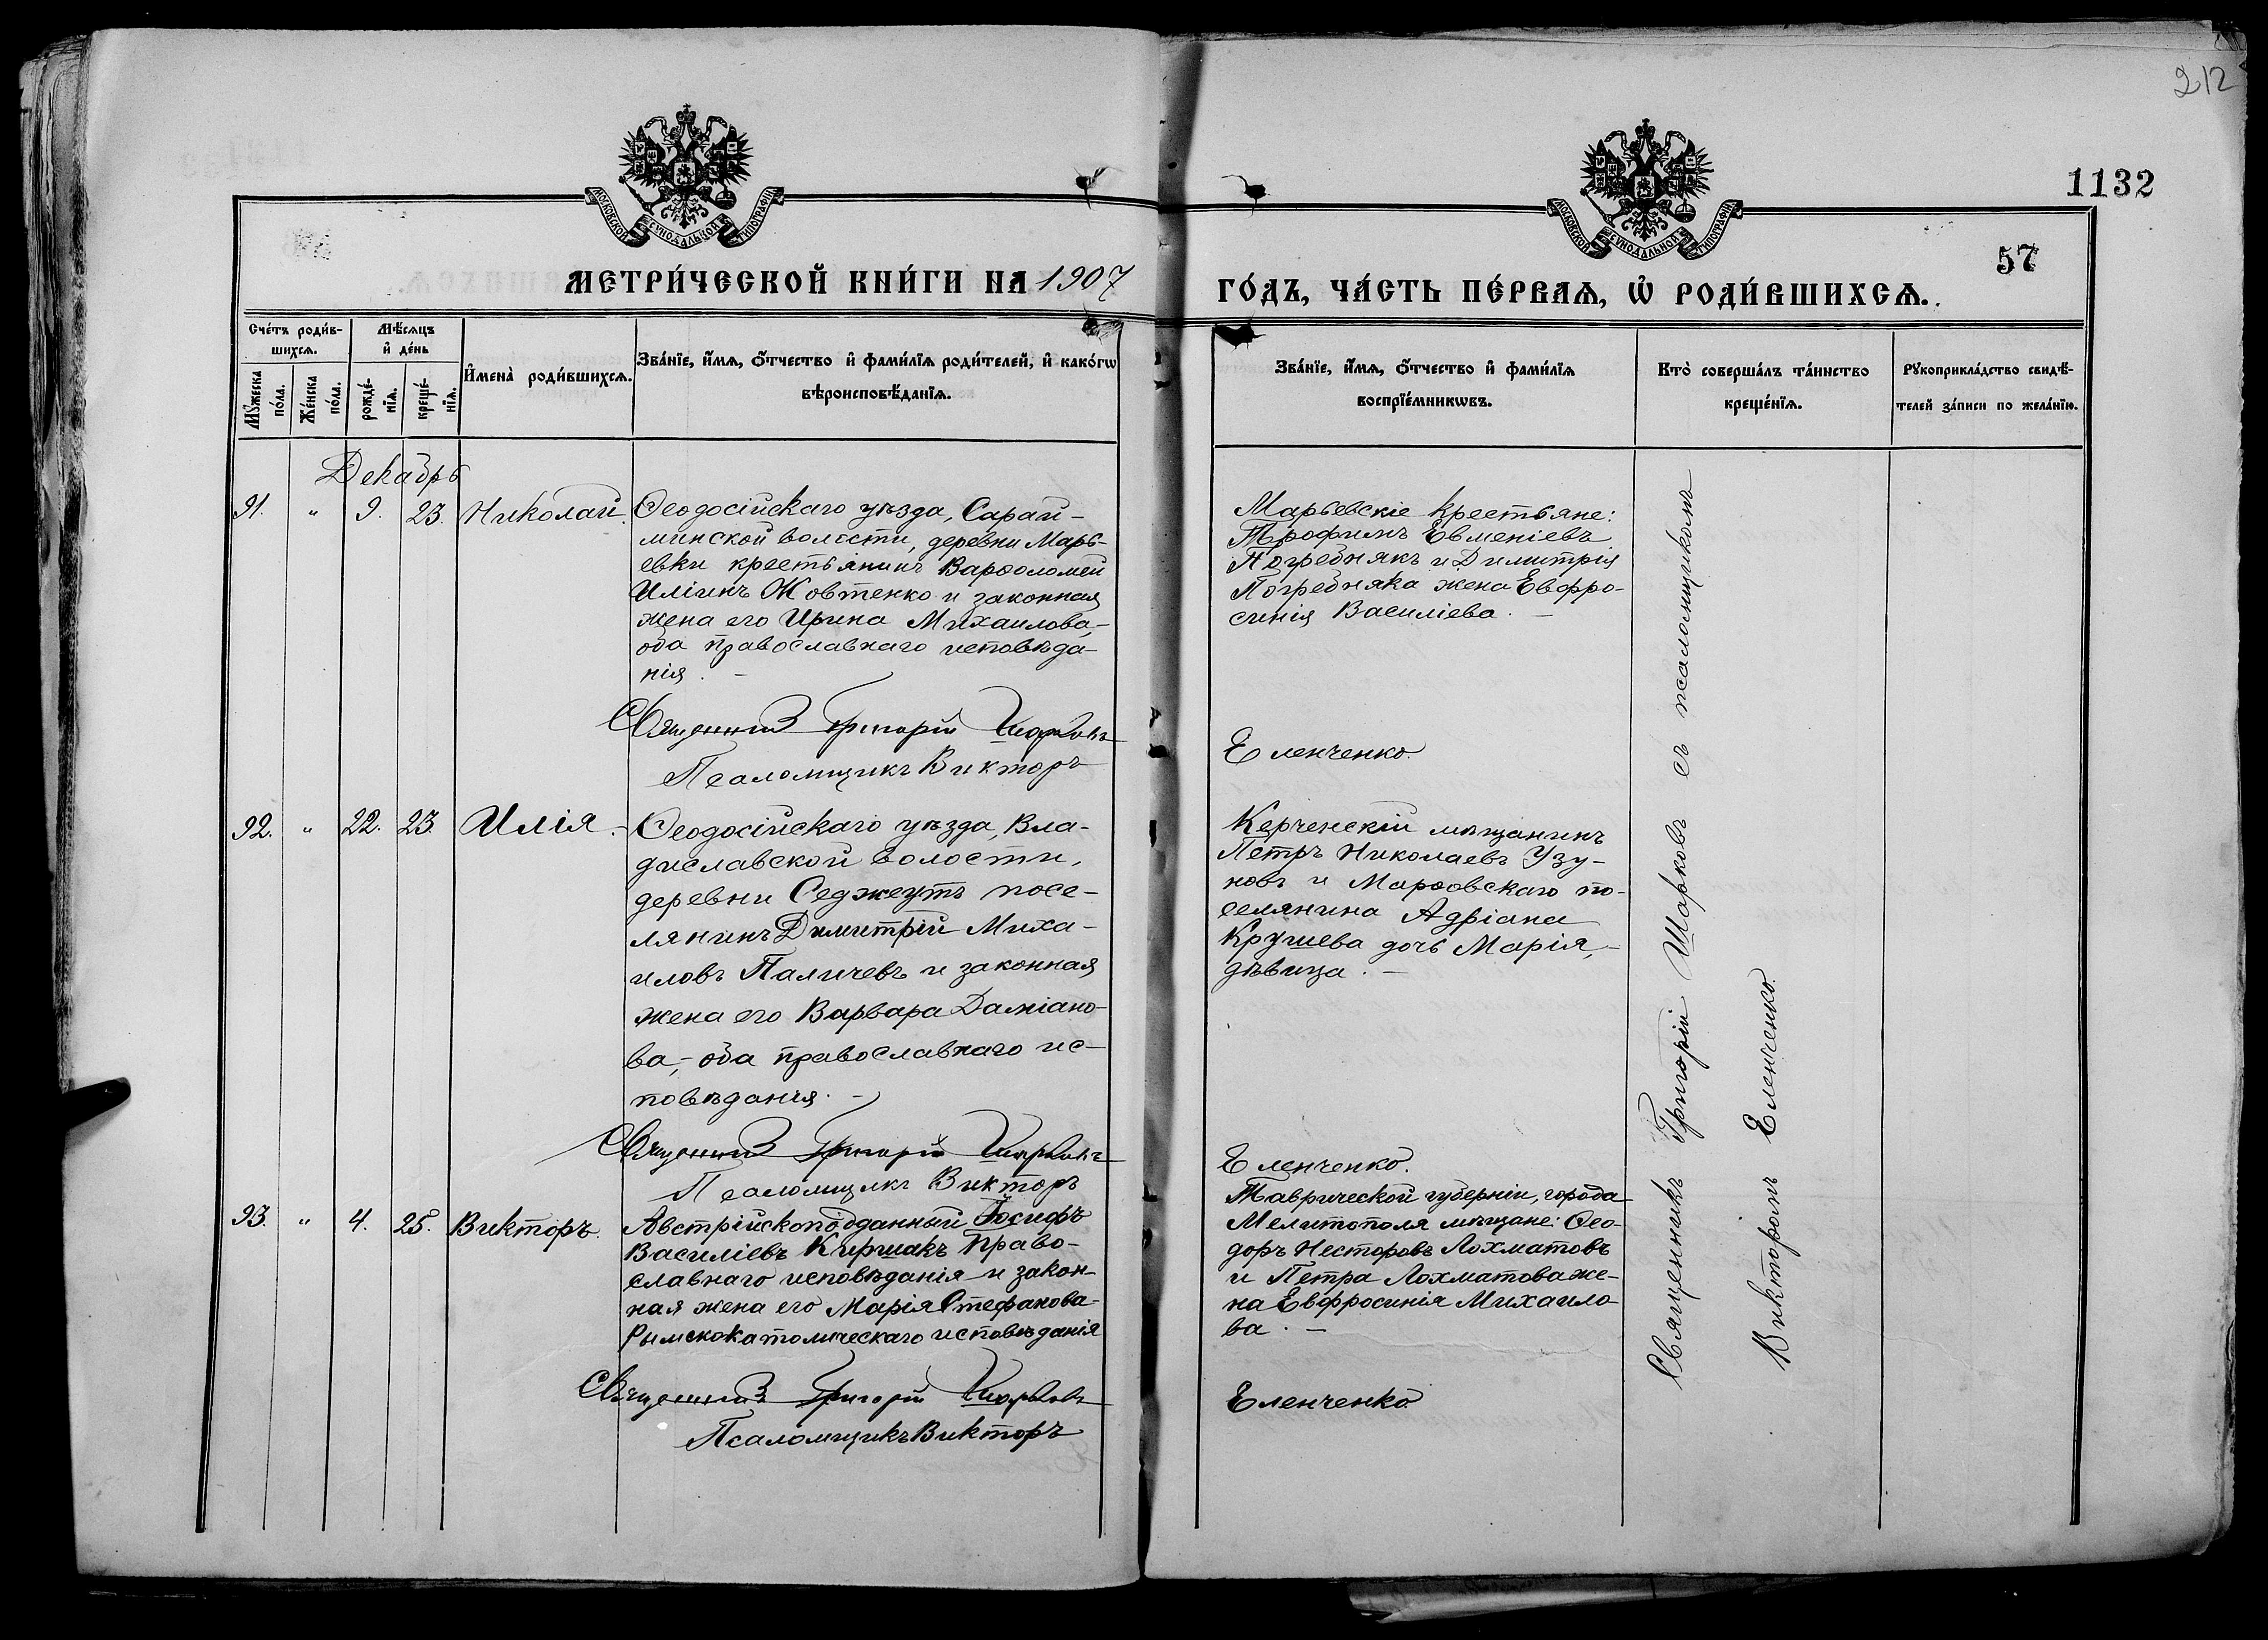 212
1132
57
МОСКОВСКОЙ СѴНОДАЛЬНОЙ ТИПОГРАФІИ
МОСКОВСКОЙ СѴНОДАЛЬНОЙ ТИПОГРАФІИ
МЕТРИ́ЧЕСКОЙ КНИ́ГИ НА 1907
ГО́ДЪ, ЧА́СТЬ ПЕ́РВАѦ, Ѡ҆ РОДИ́ВШИХСѦ.
Сче́тъ роди́в-
шихсѧ.
Мѣ́сѧцъ
и҆ де́нь
Мꙋ́жеска по́ла.
Же́нска по́ла.
рожде́-
нїѧ.
креще́-
нїѧ.
И҆мена̀ роди́вшихсѧ.
Зва́нїе, и҆́мѧ, ѻ҆́тчество и҆ фами́лїѧ роди́телей, и҆ како́гѡ
вѣроисповѣ́данїѧ.
Зва́нїе, и҆́мѧ, ѻ҆́тчество и҆ фами́лїѧ
воспрїе́мникѡвъ.
Кто̀ соверша́лъ та́инство
креще́нїѧ.
Рꙋкоприкла́дство свидѣ́-
телей за́писи по жела́нїю.
Декабрь
91. " 9. 23. Николай.
Ѳеодосійскаго уѣзда, Сарай-
минской волости, деревни Марь-
евки крестьянинъ Варѳоломей
Иліинъ Жовтенко и законная
жена его Ирина Михаилова,-
оба православнаго исповѣда-
нія. -
Священникъ Григорій Шарковъ
Псаломщикъ Викторъ
Марьевскіе крестьяне:
Трофимъ Евменіевъ
Погребнякъ и Димитрія
Погребняка жена Евфро-
синія Василіева. -
Еленченко.
92. " 22. 23. Илія. -
Ѳеодосійскаго уѣзда, Вла-
диславской волости,
деревни Седжеутъ посе-
лянинъ Димитрій Миха-
иловъ Паличевъ и законная
жена его Варвара Даміано-
ва,- оба православнаго ис-
повѣданія. -
Священникъ Григорій Шарковъ
Псаломщикъ Викторъ
Керченскій мѣщанинъ
Петръ Николаевъ Узу-
новъ и Марѳовскаго по-
селянина Адріана
Крушева дочь Марія,-
дѣвица. -
Еленченко.
93. " 4. 25. Викторъ.
Австрійскоподданный Іосифъ
Василіевъ Киршакъ право-
славнаго исповѣданія и закон-
ная жена его Марія Стефанова-
Римскокатолическаго исповѣданія
Священникъ Григорій Шарковъ
Псаломщикъ Викторъ
Таврической губерніи, города
Мелитополя мѣщане: Ѳео-
доръ Несторовъ Лохматовъ
и Петра Лохматова же-
на Евфросинія Михаило-
ва. -
Еленченко
Священникъ Григорій Шарковъ съ псаломщикомъ
Викторомъ Еленченко.